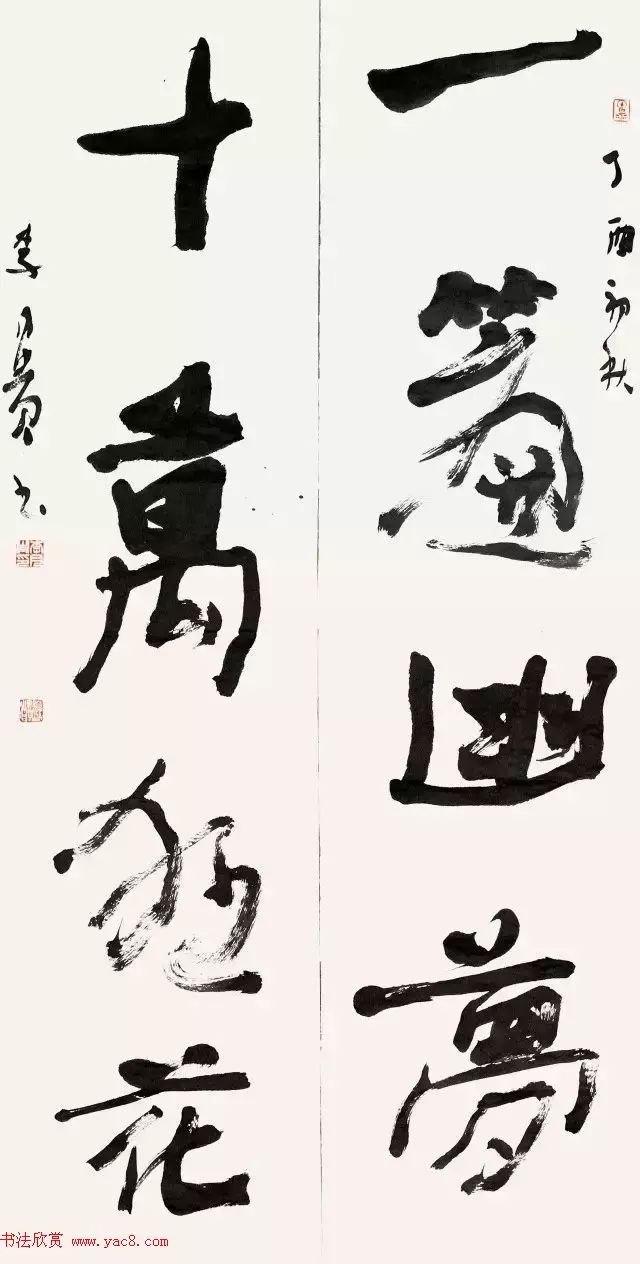 丁酉初秋
一簾幽夢
十萬狂花
李貴书
书法欣赏 www.yac8.com